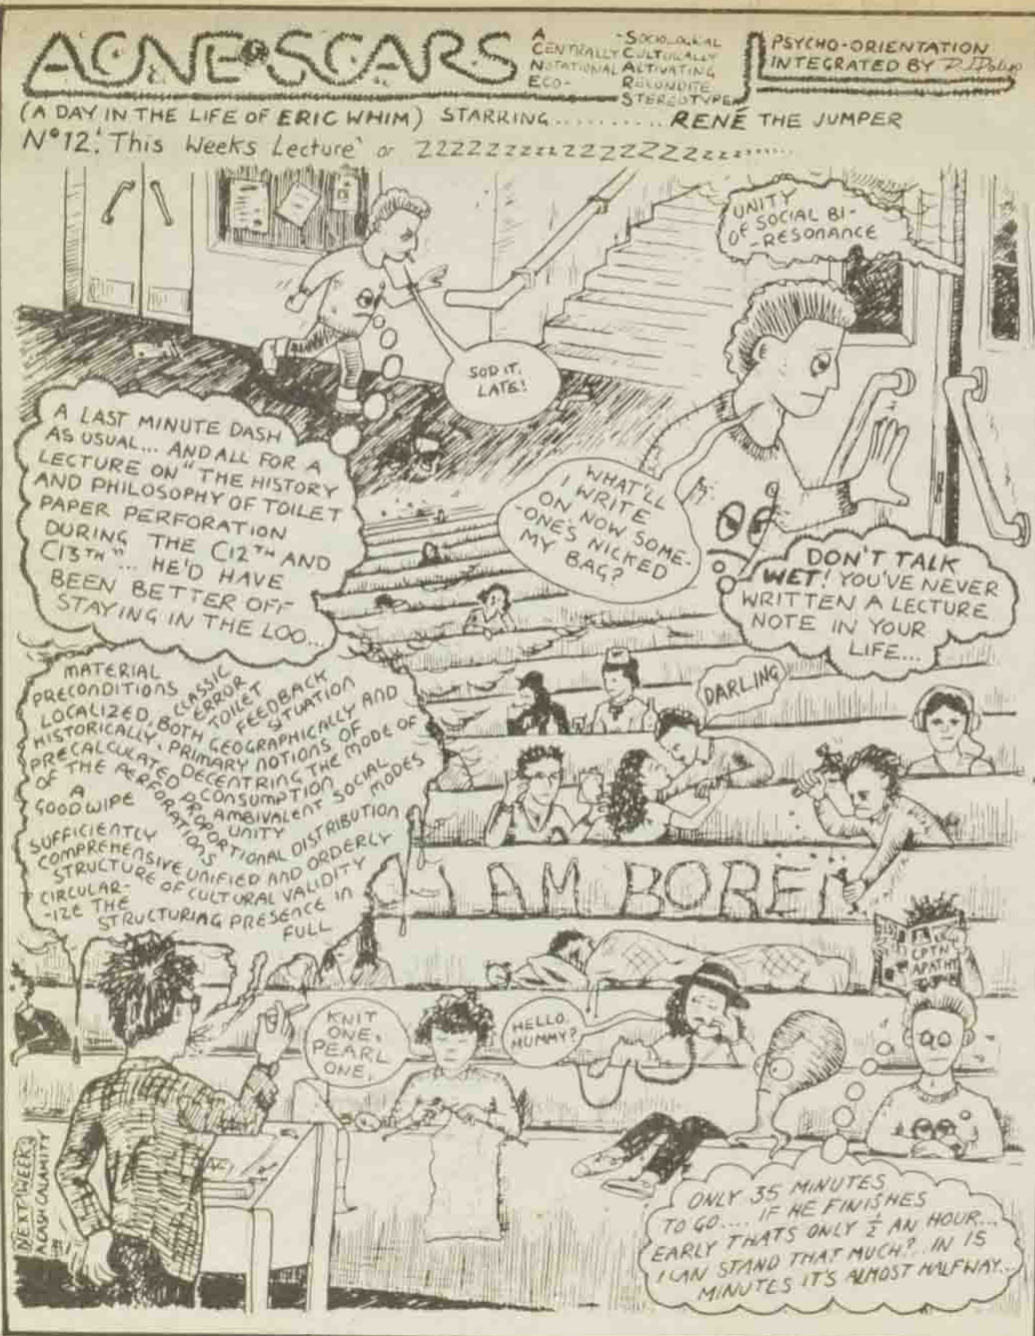 ACNE SCARS
A
CENTRALLY
NOTATIONAL
ECO-
-SOCIOLOGICAL
CULTURALLY
ACTIVATING
RECONDITE
STEREOTYPE
PSYCHO-ORIENTATION
INTEGRATED BY
(A DAY IN THE LIFE OF ERIC WHIM) STARRING.......... RENÉ THE JUMPER
Nº12: 'This Weeks Lecture' or ZZZZZZZZZZZZZZZZZZZZ.......
UNITY
OF SOCIAL BI-
-RESONANCE
SOD IT.
LATE!
A LAST MINUTE DASH
AS USUAL... AND ALL FOR A
LECTURE ON "THE HISTORY
AND PHILOSOPHY OF TOILET
PAPER PERFORATION
DURING THE C12TH AND
C13TH"... HE'D HAVE
BEEN BETTER OFF
STAYING IN THE LOO...
WHAT'LL
I WRITE
ON NOW SOME-
-ONE'S NICKED
MY BAG?
DON'T TALK
WET! YOU'VE NEVER
WRITTEN A LECTURE
NOTE IN YOUR
LIFE...
MATERIAL
PRECONDITIONS
CLASSIC
ERROR
TOILET
FEEDBACK
SITUATION
LOCALIZED, BOTH GEOGRAPHICALLY AND
HISTORICALLY, PRIMARY NOTIONS OF
PRECALCULATED DECENTRING THE MODE OF
CONSUMPTION
OF THE PERFORATIONS
AMBIVALENT SOCIAL
MODES
A
GOOD WIPE
UNITY
PROPORTIONAL DISTRIBUTION
SUFFICIENTLY
COMPREHENSIVE UNIFIED AND ORDERLY
STRUCTURE OF CULTURAL VALIDITY
CIRCULAR-
-IZE THE
STRUCTURING PRESENCE IN
FULL
DARLING
I AM BORE
CPTN
APATHY
KNIT
ONE,
PEARL
ONE,
HELLO,
MUMMY?
NEXT WEEK
A CASH CALAMITY
ONLY 35 MINUTES
TO GO.... IF HE FINISHES
EARLY THATS ONLY ½ AN HOUR...
I CAN STAND THAT MUCH?.. IN 15
MINUTES IT'S ALMOST HALFWAY...